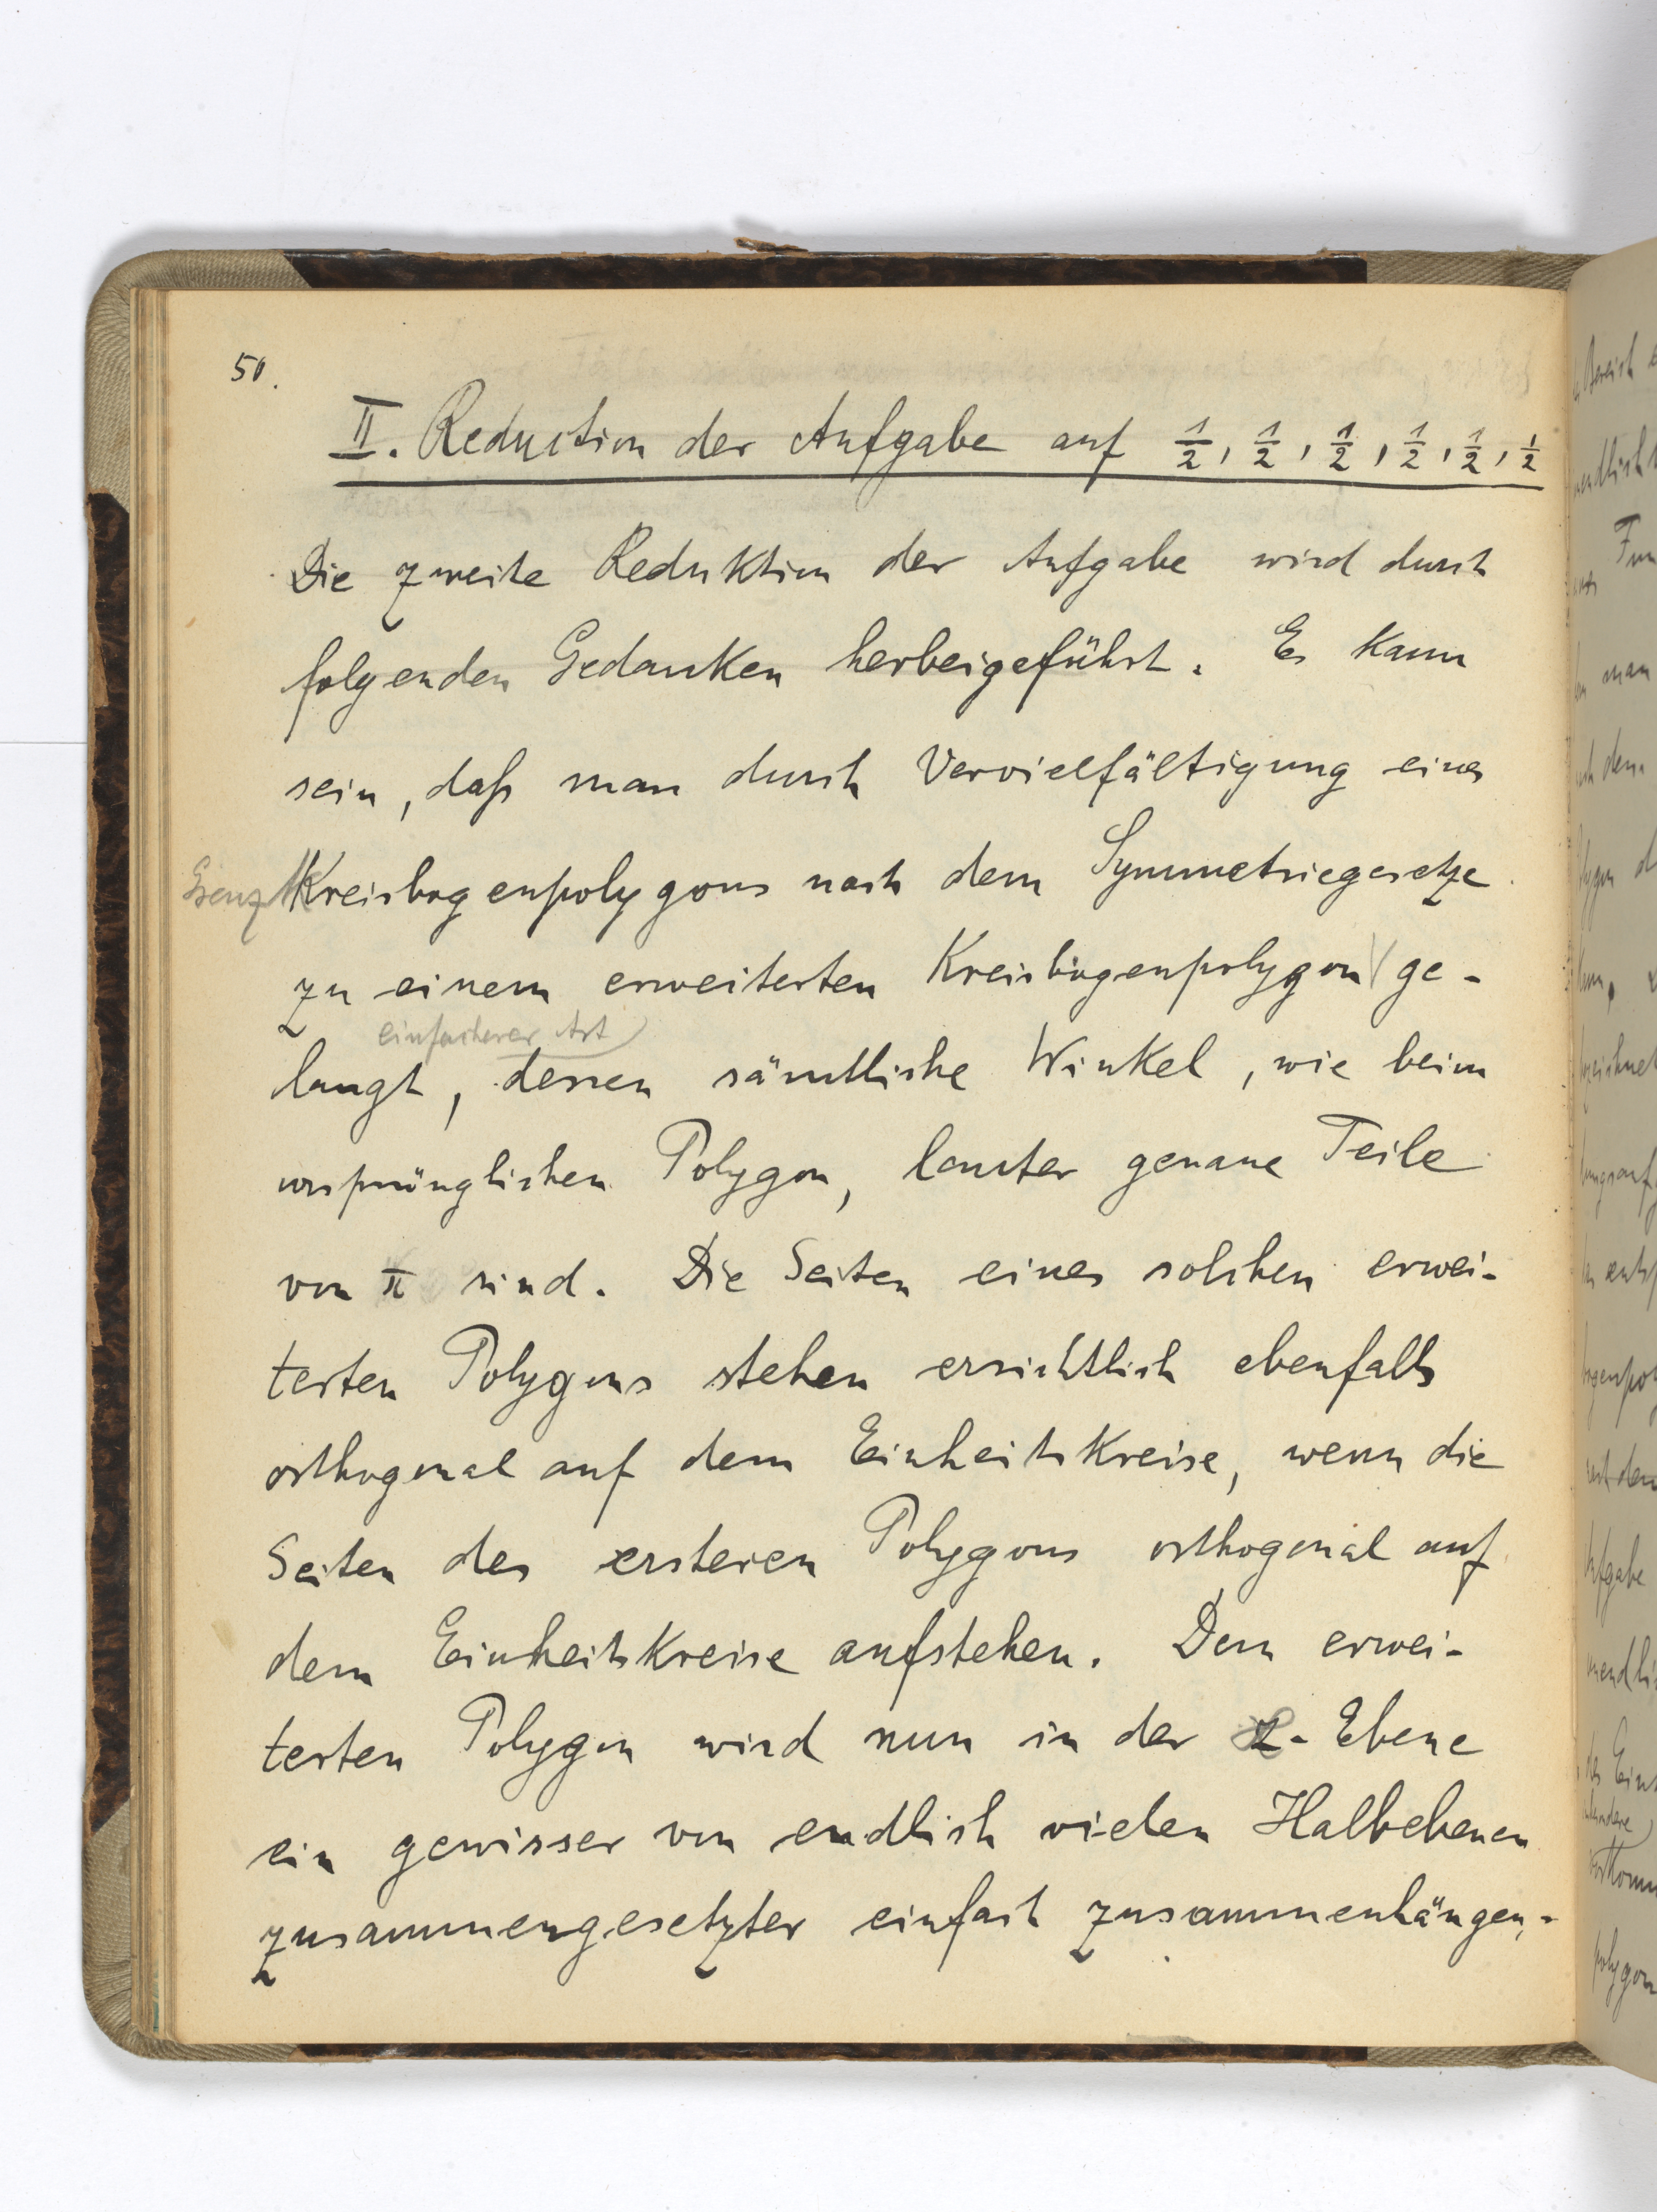 50.
II. Reduction der Aufgabe auf 1/2, 1/2, 1/2, 1/2, 1/2, 1/2
Die zweite Reduktion der Aufgabe wird durch
folgenden Gedanken herbeigeführt. Es kann
sein, daß man durch Vervielfältigung eines
Grenz Kreisbogenpolygons nach dem Symmetriegesetze
zu einem erweiterten Kreisbogenpolygon ge-
einfacherer Art
langt, dessen sämtliche Winkel, wie beim
ursprünglichen Polygon, lauter genaue Teile
von π sind. Die Seiten eines solchen erwei-
terten Polygons stehen ersichtlich ebenfalls
orthogonal auf dem Einheitskreise, wenn die
Seiten des ersteren Polygons orthogonal auf
dem Einheitskreise aufstehen. Dem erwei-
terten Polygon wird nun in der z-Ebene
ein gewisser von endlich vielen Halbebenen
zusammengesetzter einfach zusammenhängen-